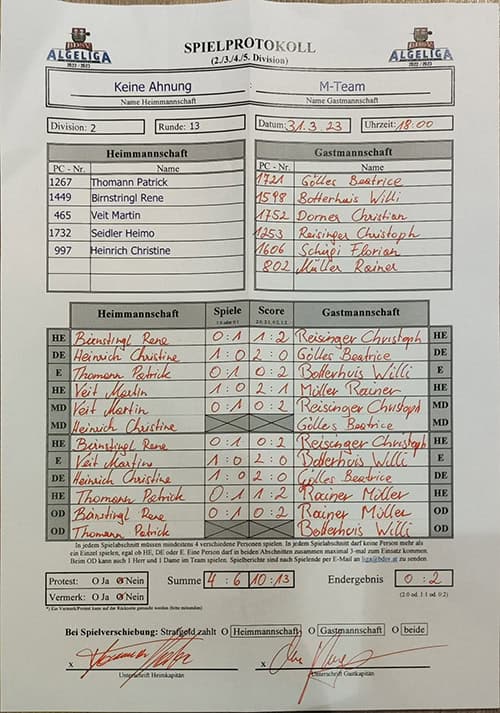 ALGELIGA
2022 / 2023
SPIELPROTOKOLL
(2./3./4./5. Division)
ALGELIGA
2022 / 2023
Keine Ahnung : M-Team
Name Heimmannschaft Name Gastmannschaft
Division: 2 Runde: 13 Datum: 31.3.23 Uhrzeit: 18:00
Heimmannschaft
PC - Nr. Name
1267 Thomann Patrick
1449 Birnstringl Rene
465 Veit Martin
1732 Seidler Heimo
997 Heinrich Christine
Gastmannschaft
PC - Nr. Name
1721 Gölles Beatrice
1598 Botterhuis Willi
1752 Dorner Christian
1253 Reisinger Christoph
1606 Schügi Florian
802 Müller Rainer
Heimmannschaft Spiele Score Gastmannschaft
1:0 oder 0:1 2:0, 2:1, 0:2, 1:2
HE Birnstingl Rene 0:1 1:2 Reisinger Christoph HE
DE Heinrich Christine 1:0 2:0 Gölles Beatrice DE
E Thomann Patrick 0:1 0:2 Botterhuis Willi E
HE Veit Martin 1:0 2:1 Müller Rainer HE
MD Veit Martin 0:1 0:2 Reisinger Christoph MD
MD Heinrich Christine Gölles Beatrice MD
HE Birnstingl Rene 0:1 0:2 Reisinger Christoph HE
E Veit Martin 1:0 2:0 Botterhuis Willi E
DE Heinrich Christine 1:0 2:0 Gölles Beatrice DE
HE Thomann Patrick 0:1 1:2 Rainer Müller HE
OD Birnstingl Rene 0:1 0:2 Rainer Müller OD
OD Thomann Patrick Botterhuis Willi OD
In jedem Spielabschnitt müssen mindestens 4 verschiedene Personen spielen. In jedem Spielabschnitt darf keine Person mehr als
ein Einzel spielen, egal ob HE, DE oder E. Eine Person darf in beiden Abschnitten zusammen maximal 3-mal zum Einsatz kommen.
Beim OD kann auch 1 Herr und 1 Dame im Team spielen. Spielberichte sind nach Spielende per E-Mail an liga@bdsv.at zu senden
Protest: O Ja O Nein Summe 4:6 10:13 Endergebnis 0:2
Vermerk: O Ja O Nein (2:0 od. 1:1 od. 0:2)
*) Ein Vermerk/Protest kann auf der Rückseite gemacht werden (bitte ankreuzen)
Bei Spielverschiebung: Strafgeld zahlt O Heimmannschaft O Gastmannschaft O beide
x x
Unterschrift Heimkapitän Unterschrift Gastkapitän